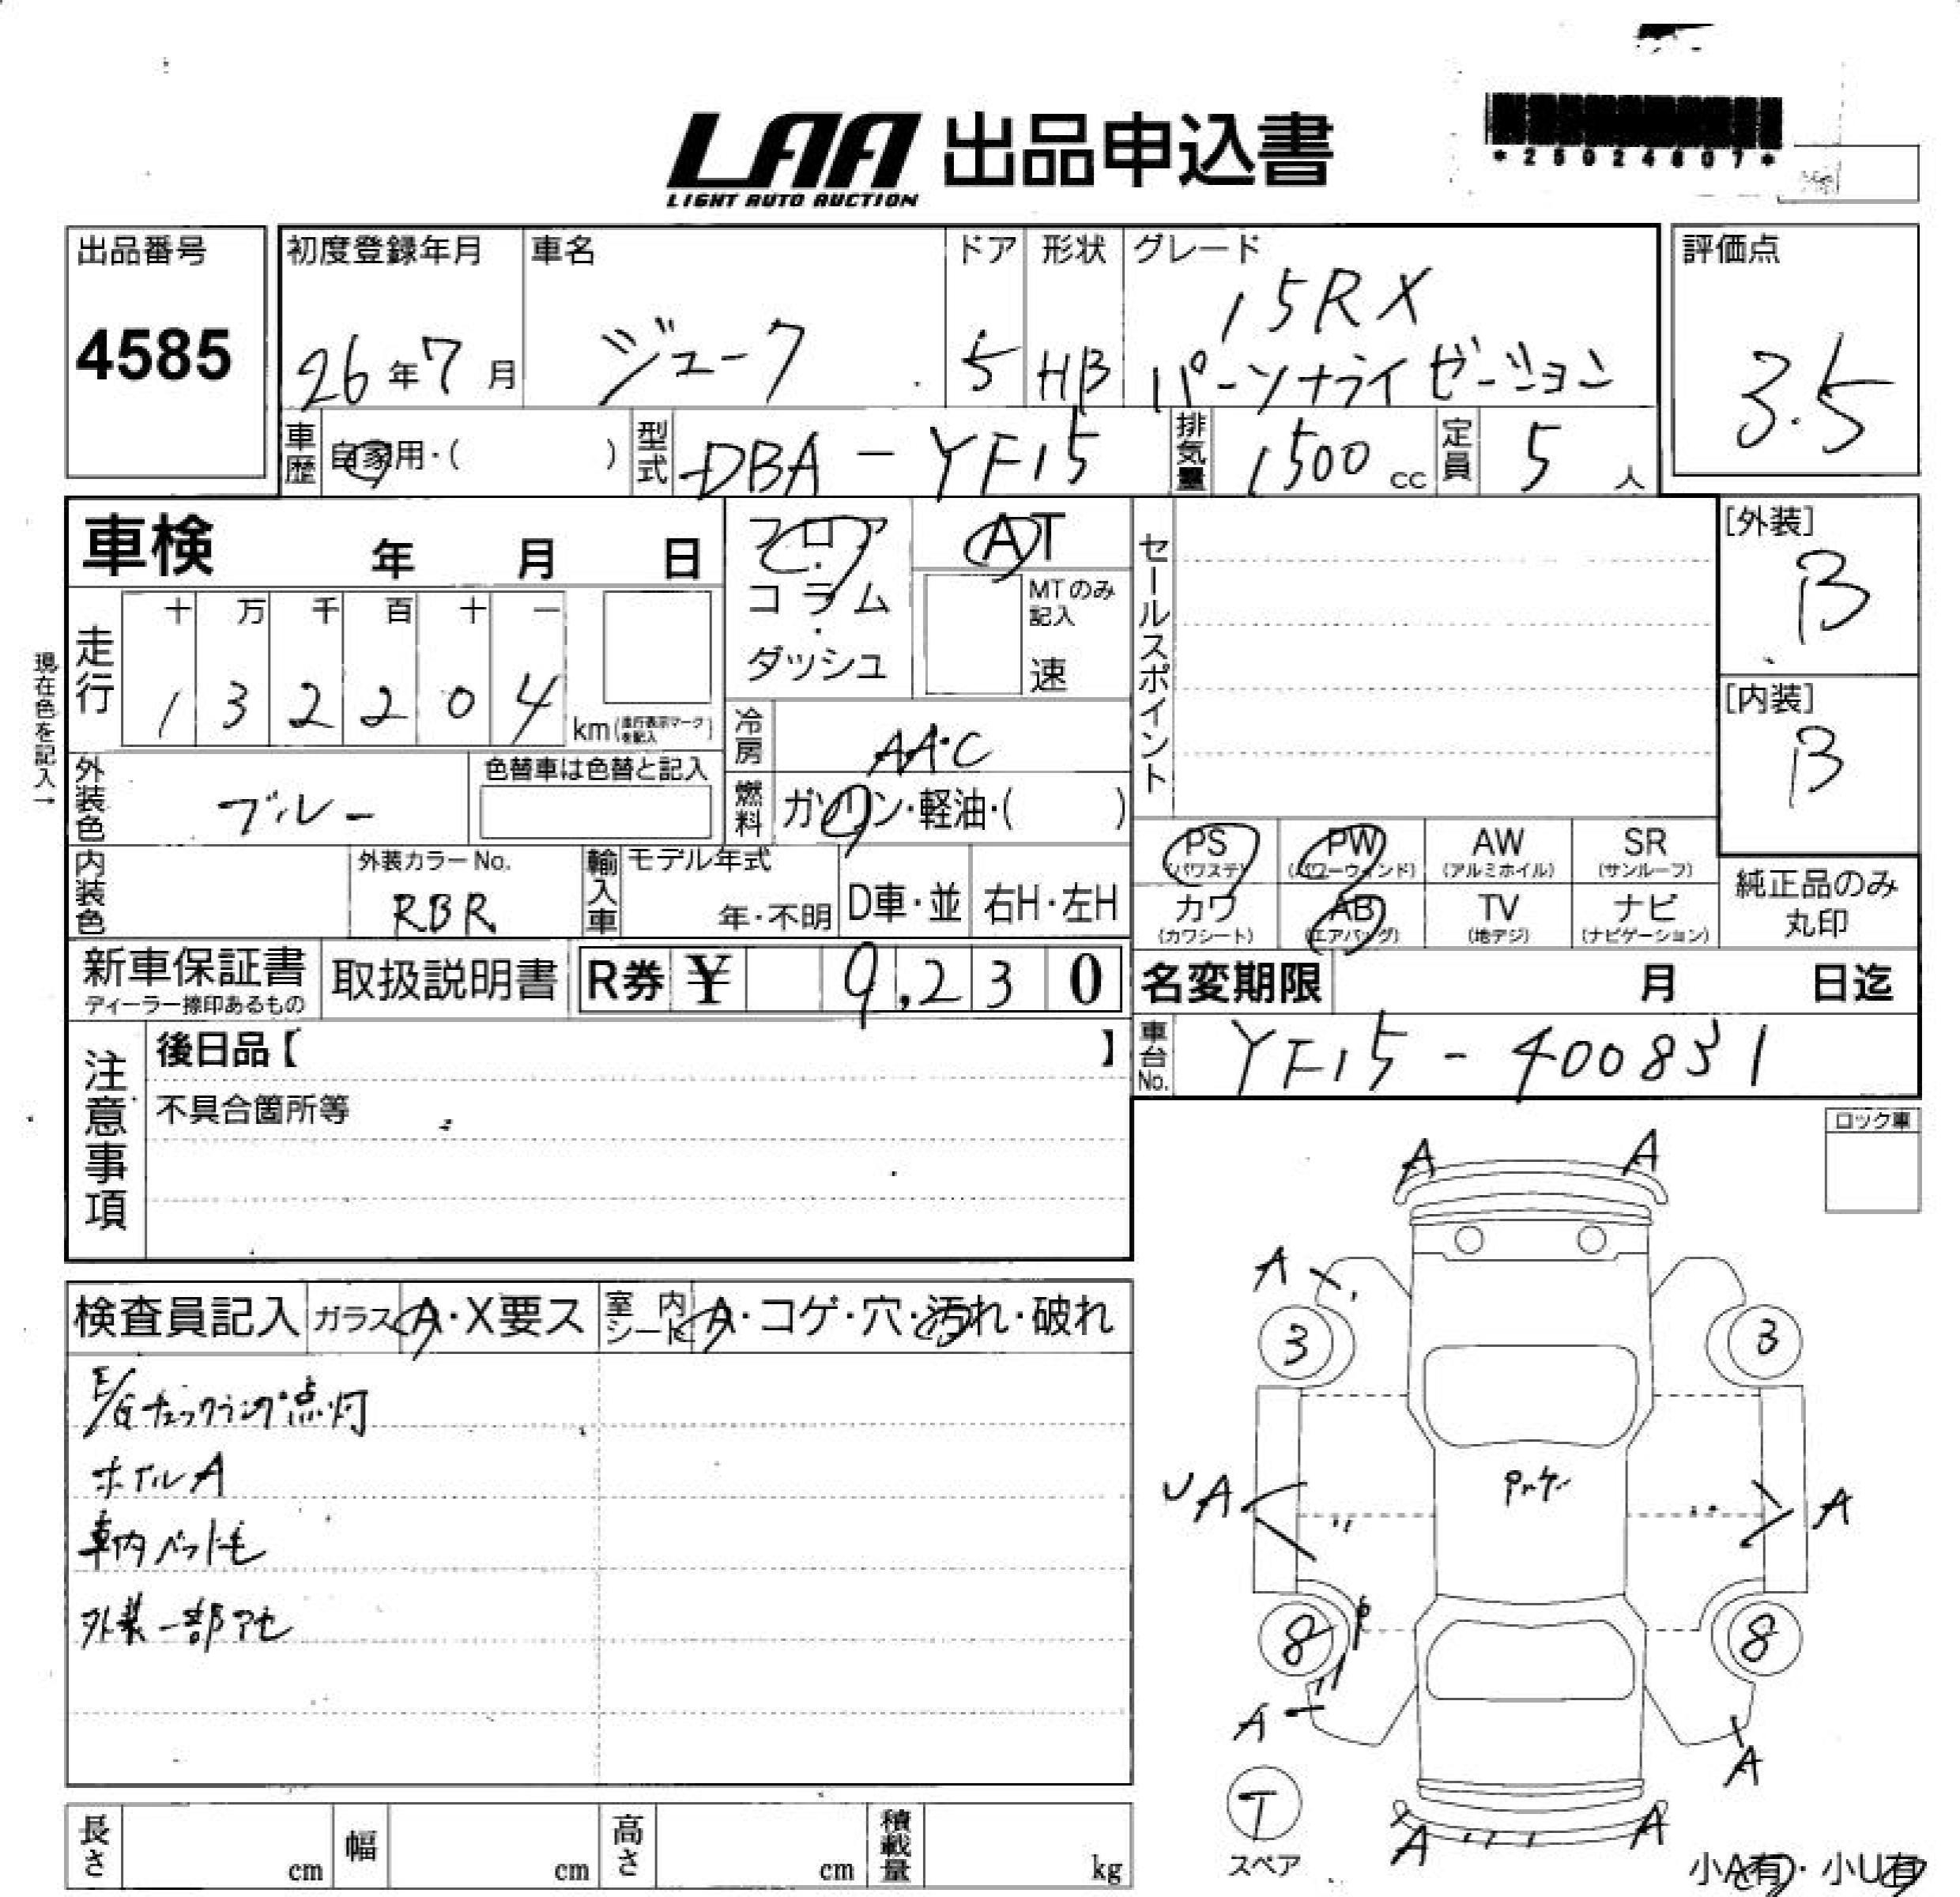 LAA 出品申込書
LIGHT AUTO AUCTION
*25024607*
出品番号
4585
初度登録年月
26年7月
車名
ジューク
ドア
5
形状
HB
グレード
15RX
パーソナライゼーション
評価点
3.5
車歴
自家用・( )
型式
DBA-YF15
排気量
1500 cc
定員
5 人
車検 年 月 日
フロア・コラム・ダッシュ
AT
MTのみ記入
速
セールスポイント
[外装]
B
[内装]
B
現在色を記入→
走行
十 万 千 百 十 一
1 3 2 2 0 4
km(走行表示マークを記入)
冷房
AAC
外装色
ブルー
色替車は色替と記入
燃料
ガソリン・軽油・( )
PS (パワステ)
PW (パワーウィンド)
AW (アルミホイル)
SR (サンルーフ)
カワ (カワシート)
AB (エアバッグ)
TV (地デジ)
ナビ (ナビゲーション)
純正品のみ丸印
内装色
外装カラーNo.
RBR
輸入車
モデル年式
年・不明
D車・並
右H・左H
新車保証書
ディーラー捺印あるもの
取扱説明書
R券 ¥ 9,230
名変期限 月 日迄
車台No.
YF15-400831
注意事項
後日品【 】
不具合箇所等
ロック車
検査員記入
ガラス
A・X要ス
室内シート
A・コゲ・穴・汚れ・破れ
E/Gチェックランプ点灯
ホイルA
車内ペット毛
外装一部アセ
A A
A
3 3
UA
A
8 8
A
A
T
スペア
A A
小A有・小U有
長さ cm
幅 cm
高さ cm
積載量 kg